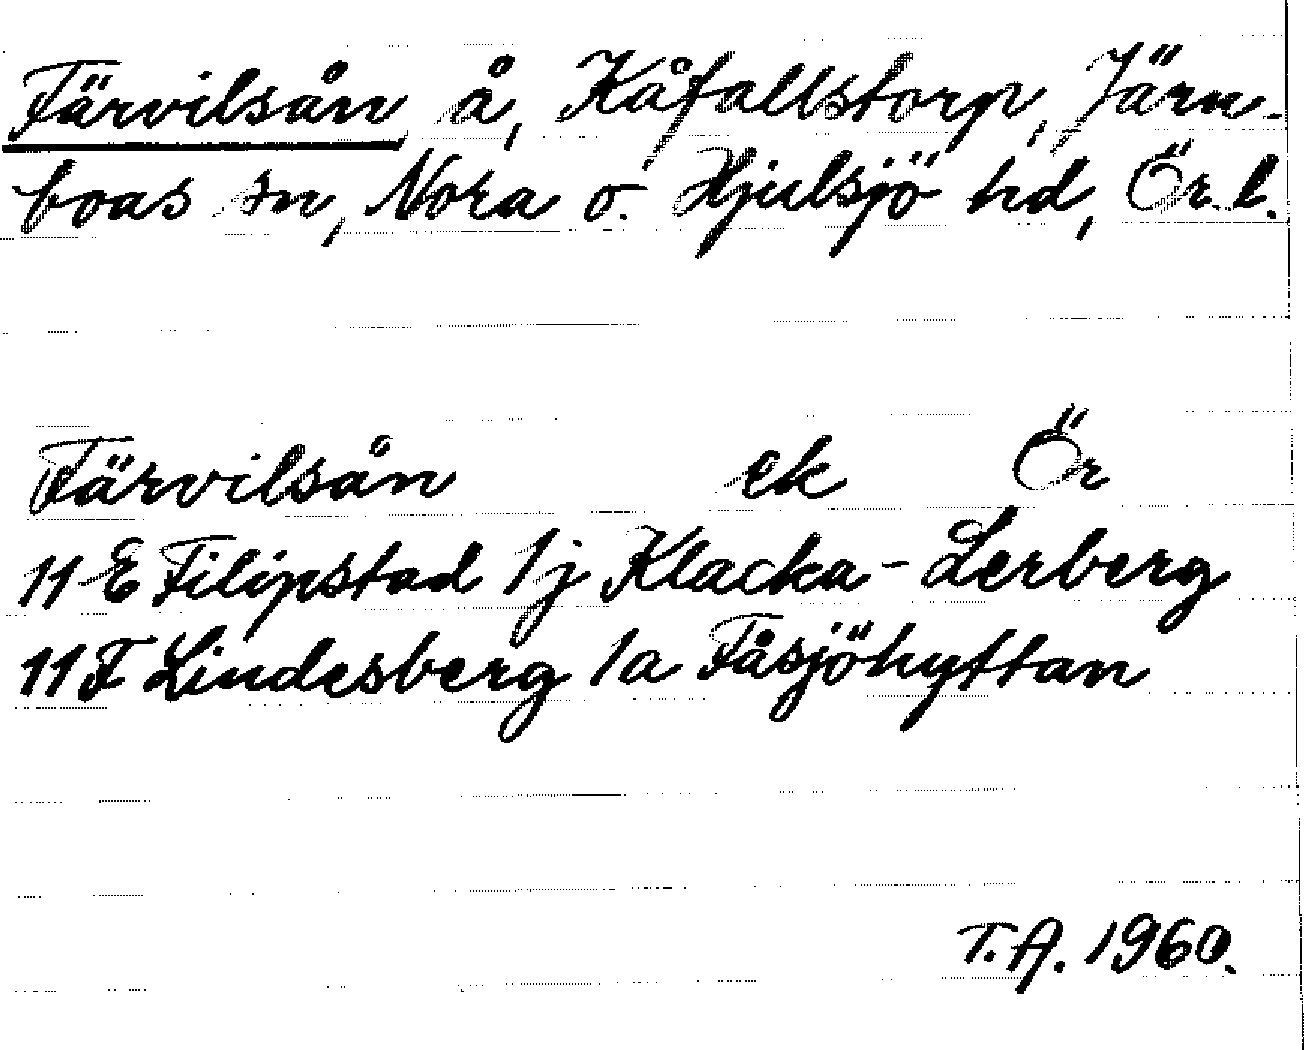 Färvilsån å, Kåfallstorp, Järn-
boas sn, Nora o. Hjulsjö hd, Ör. l.
Färvilsån ek Ör
11 E Filipstad 1j Klacka-Lerberg
11 F Lindesberg 1a Fåsjöhyttan
T.A. 1960.